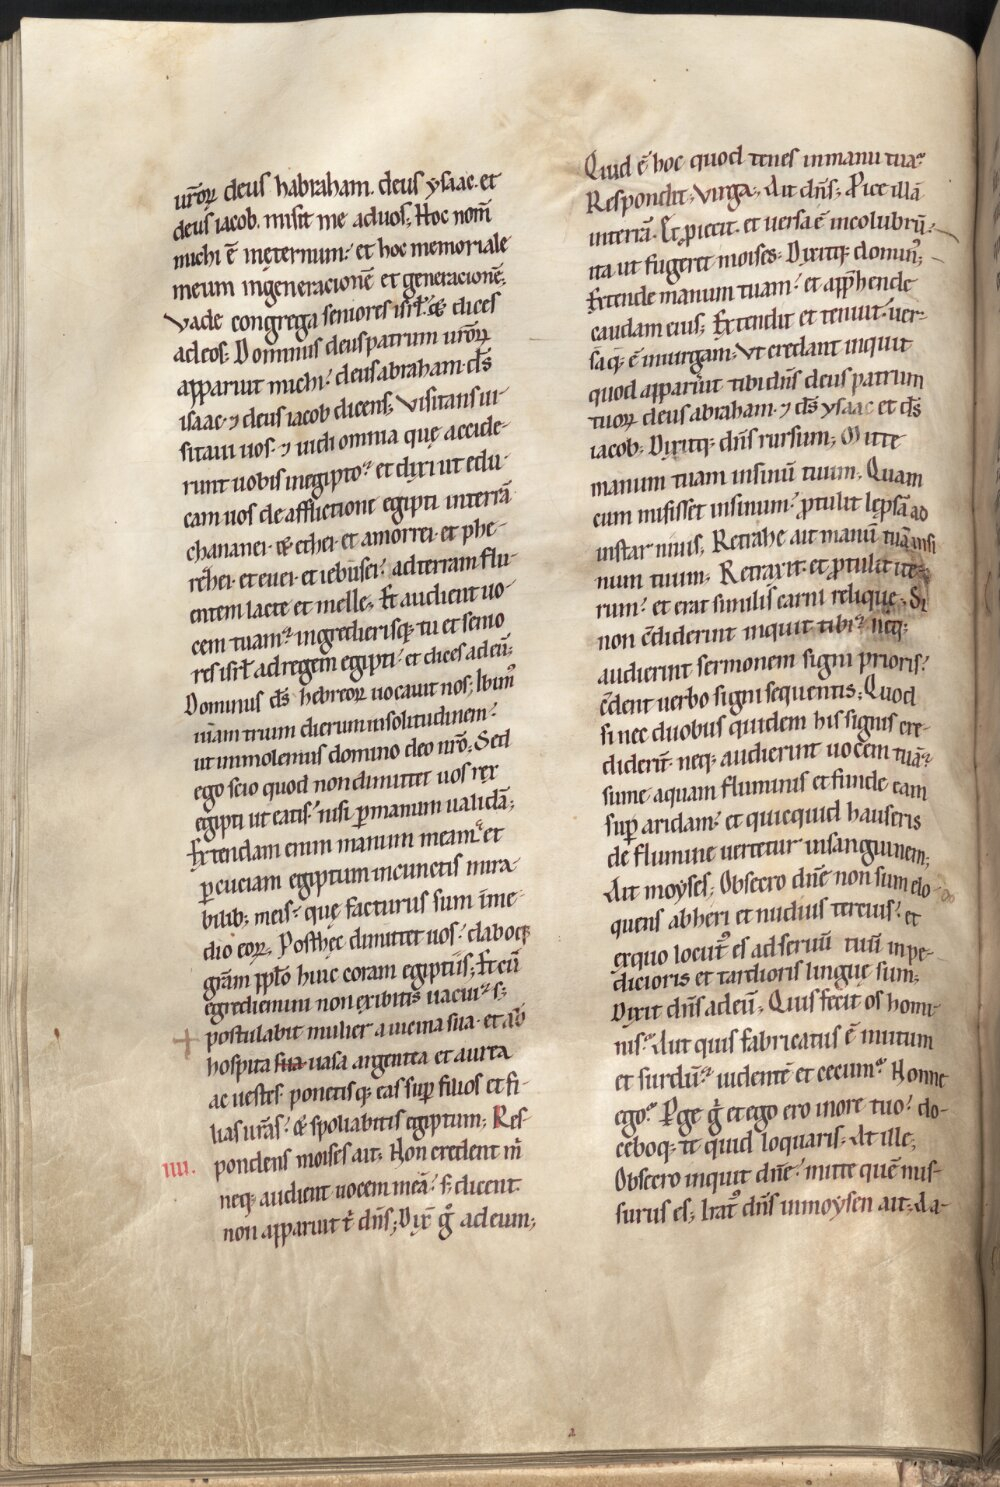 ur̄oꝝ deus habraham. deus ysaac. et
deus iacob. misit me aduos; Hoc nom̄
michi ē inęternum: et hoc memoriale
meum ingeneracionē et generacionē;
Vade congrega seniores isrł: & dices
adeos; Dominus deus patrum ur̄oꝝ
apparuit michi: deus abraham. ds̄
isaac ⁊ deus iacob dicens; Visitans ui-
sitaui uos. ⁊ uidi omnia quę accide-
runt uobis inegipto: et dixi ut edu-
cam uos de afflictione egipti interrā
chananei. & ethei. et amorrei. et phe-
rezhei. et euei. et iebusei: adterram flu-
entem lacte et melle; Et audient uo-
cem tuam: ingredierisq; tu et senio
res isrł adregem egipti: et dices adeū;
Dominus ds̄ hebreoꝝ uocauit nos; Ibimꝰ
uiam trium dierum insolitudinem:
ut immolemus domino deo nr̄o; Sed
ego scio quod non dimittet uos rex
egipti ut eatis: nisi ꝑ manum ualidā;
Extendam enim manum meam: et
ꝑcuciam egiptum incunctis mira-
bilib; meis: quę facturus sum īme-
dio eoꝝ; Posthęc dimittet uos: daboq;
grām pplo huic coram egiptiis; Et cū
egrediemini non exibitis uacui: s;
postulabit mulier a uicina sua. et ab
hospita sua uasa argentea et aurea
ac uestes. ponetisq; eas suꝑ filios et fi-
lias ur̄as: & spoliabitis egiptum; Res-
IIII. pondens moises ait; Non credent m̄
neq; audient uocem meā: s; dicent.
non apparuit t̄ dn̄s; Dix̄ g̊ adeum;
Quid ē hoc quod tenes inmanu tua?
Respondit; Virga; Ait dn̄s; Proice illā
interrā. Et ꝓiecit. et uersa ē incolubrū:
ita ut fugeret moises; Dixitq; dominꝰ;
Extende manum tuam: et appͬhende
caudam eius; Extendit et tenuit. uer-
saq; ē inuirgam; Vt credant inquit
quod apparuit tibi dn̄s deus patrum
tuoꝝ deus abraham. ⁊ ds̄ ysaac et ds̄
iacob; Dixitq; dn̄s rursum; Mitte
manum tuam insinū tuum; Quam
cum misisset insinum: ꝓtulit lepsā ad
instar niuis; Retrahe ait manū tuā insi
num tuum; Retraxit. et ꝓtulit ite-
rum: et erat similis carni relique; Si
non c̄diderint inquit tibi: neq;
audierint sermonem signi prioris:
c̄dent uerbo signi sequentis; Quod
si nec duobus quidem his signis cre-
diderit. neq; audierint uocem tuā:
sume aquam fluminis et funde eam
suꝑ aridam: et quicquid hauseris
de flumine uertetur insanguinem;
Ait moyses; Obsecro dn̄e non sum elo-
quens abheri et nudius tercius: et
exquo locutꝰ es ad seruū tuū inpe-
dicioris et tardioris linguę sum;
Dixit dn̄s adeū; Quis fecit os homi-
nis? Aut quis fabricatus ē mutum
et surdū? uidentē et cecum? Nonne
ego? Ꝑge g̊ et ego ero inore tuo: do-
ceboq; te quid loquaris. At ille;
Obsecro inquit dn̄e: mitte quē mis-
surus es; Iratꝰ dn̄s inmoysen ait; Aa-